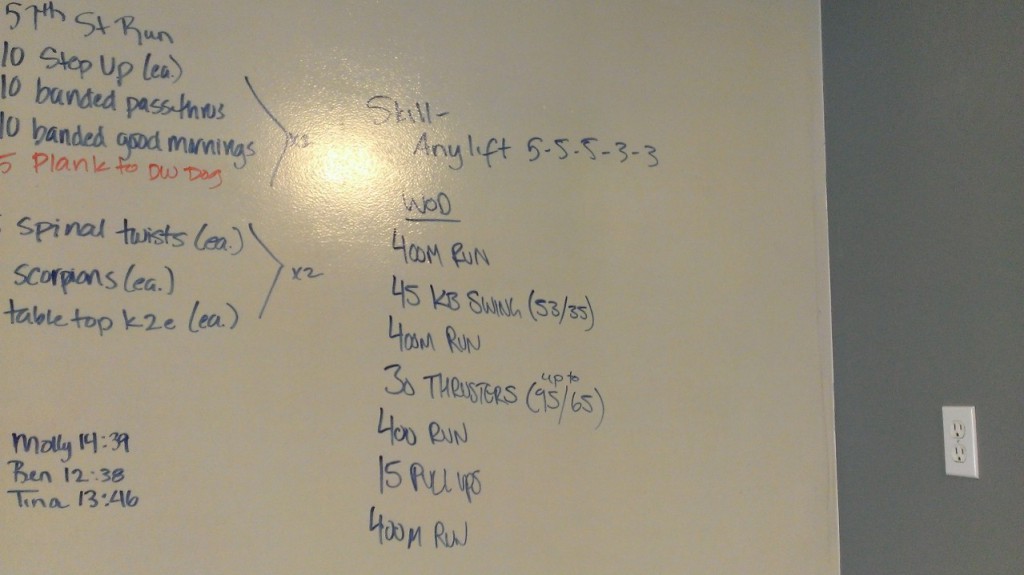 57th St Run
10 Step Up (ea.)
10 banded pass-thrus
10 banded good mornings
5 Plank to DW Dog
spinal twists (ea.)
x2
scorpions (ea.)
table top k2e (ea.)
Molly 14:39
Ben 12:38
Tina 13:46
Skill-
Any lift 5-5-5-3-3
WOD
400M RUN
45 KB SWING (53/35)
400M RUN
30 THRUSTERS (up to 95/65)
400 RUN
15 PULL UPS
400M RUN